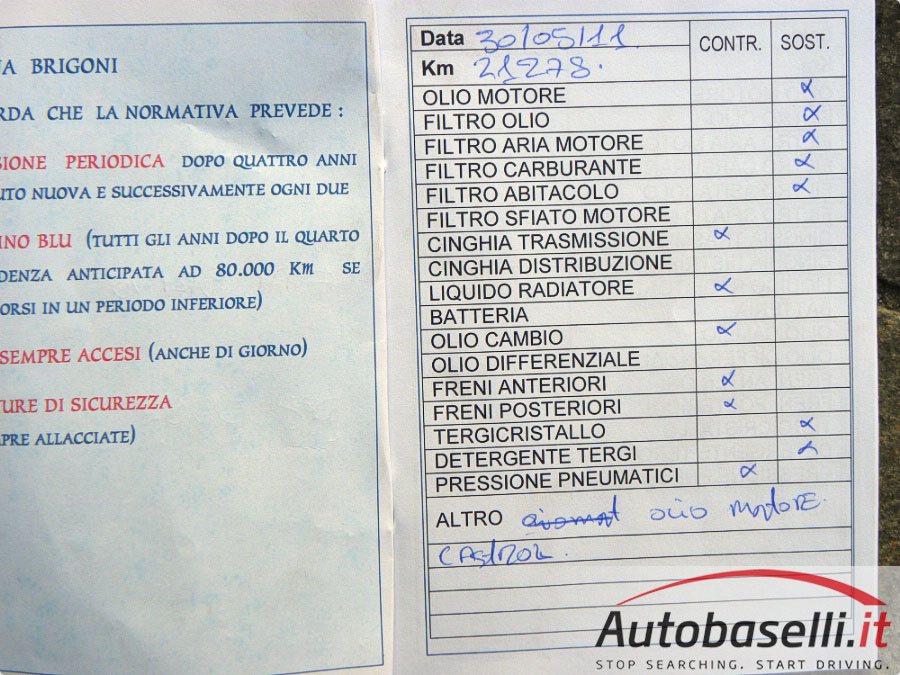 A BRIGONI
RDA CHE LA NORMATIVA PREVEDE :
SIONE PERIODICA DOPO QUATTRO ANNI
UTO NUOVA E SUCCESSIVAMENTE OGNI DUE
INO BLU (TUTTI GLI ANNI DOPO IL QUARTO
DENZA ANTICIPATA AD 80.000 Km SE
ORSI IN UN PERIODO INFERIORE)
SEMPRE ACCESI (ANCHE DI GIORNO)
TURE DI SICUREZZA
PRE ALLACCIATE)
Data 30/05/11. CONTR. SOST.
Km 21278.
OLIO MOTORE
FILTRO OLIO
FILTRO ARIA MOTORE
FILTRO CARBURANTE
FILTRO ABITACOLO
FILTRO SFIATO MOTORE
CINGHIA TRASMISSIONE
CINGHIA DISTRIBUZIONE
LIQUIDO RADIATORE
BATTERIA
OLIO CAMBIO
OLIO DIFFERENZIALE
FRENI ANTERIORI
FRENI POSTERIORI
TERGICRISTALLO
DETERGENTE TERGI
PRESSIONE PNEUMATICI
ALTRO olio MOTORE.
CASTROL.
Autobaselli.it
STOP SEARCHING. START DRIVING.